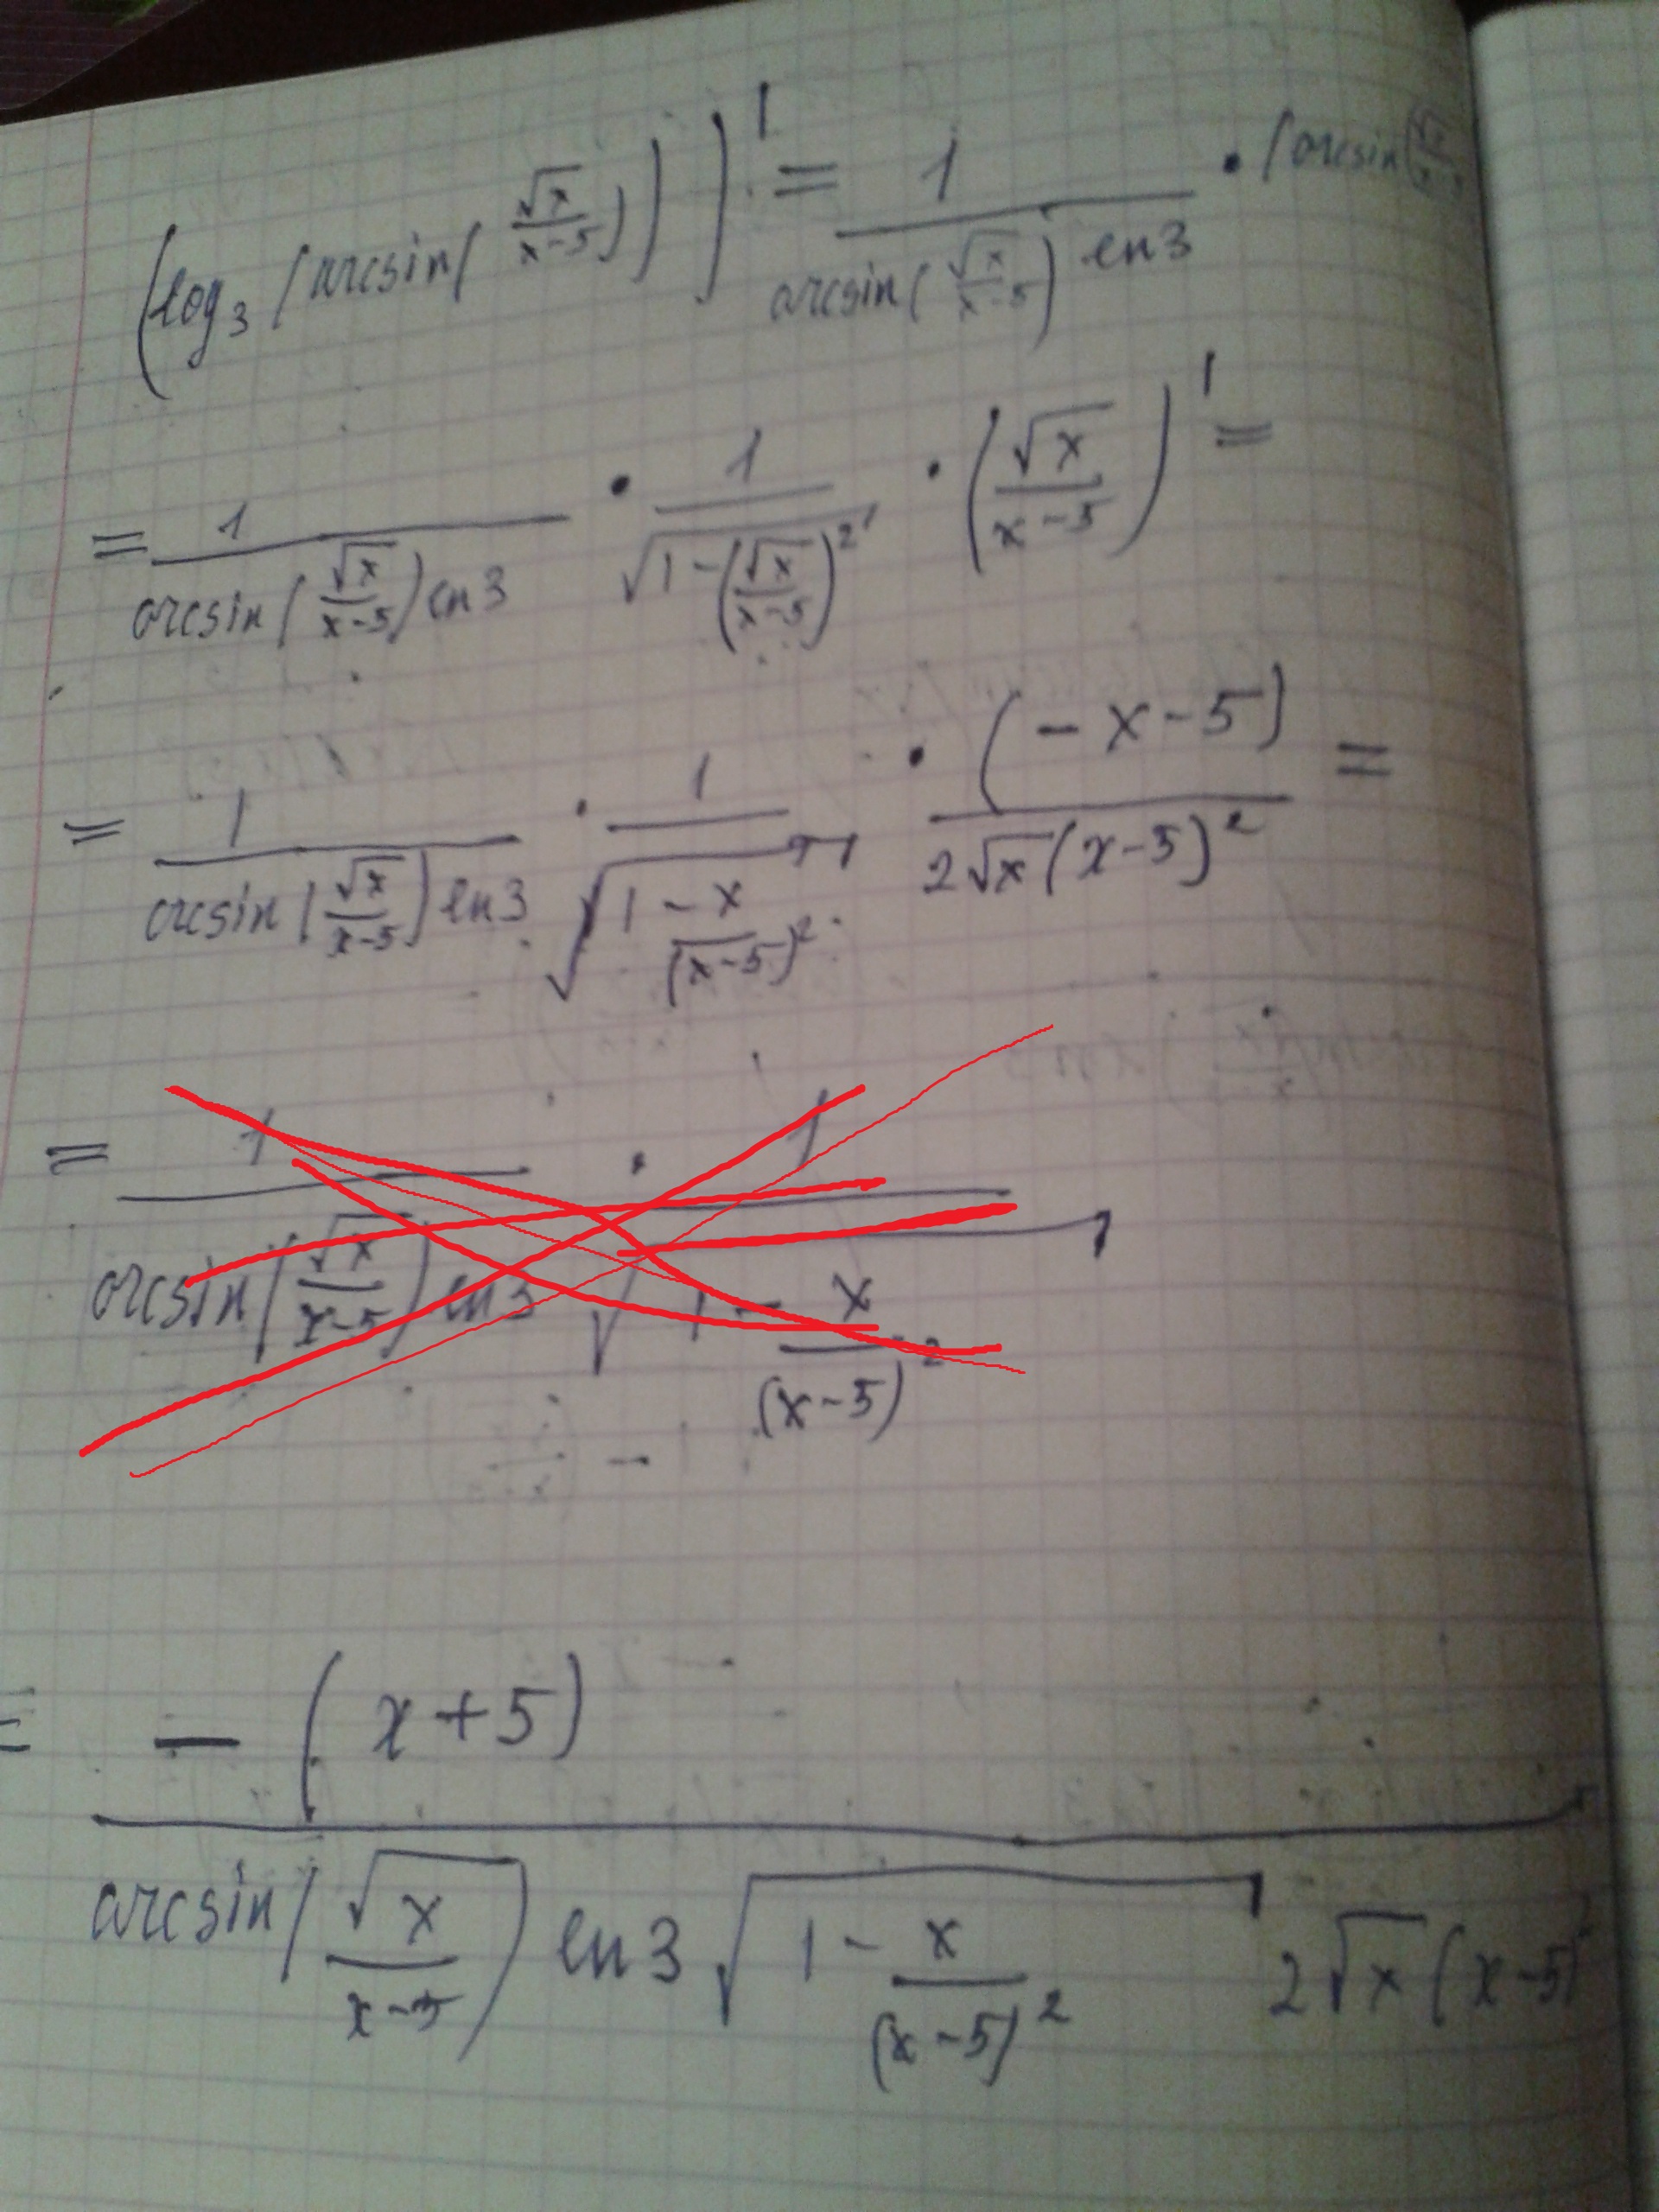 (log₃(arcsin(√x/(x-5))))' = 1/(arcsin(√x/(x-5)) ln3) · (arcsin(√x/
= 1/(arcsin(√x/(x-5)) ln3) · 1/√(1-(√x/(x-5))²) · (√x/(x-5))' =
= 1/(arcsin(√x/(x-5)) ln3) · 1/√(1-x/(x-5)²) · (-x-5)/(2√x(x-5)²) =
= 1/(arcsin(√x/(x-5)) ln3) · 1/√(1-x/(x-5)²)
= -(x+5)/(arcsin(√x/(x-5)) ln3 √(1-x/(x-5)²) 2√x(x-5)²)